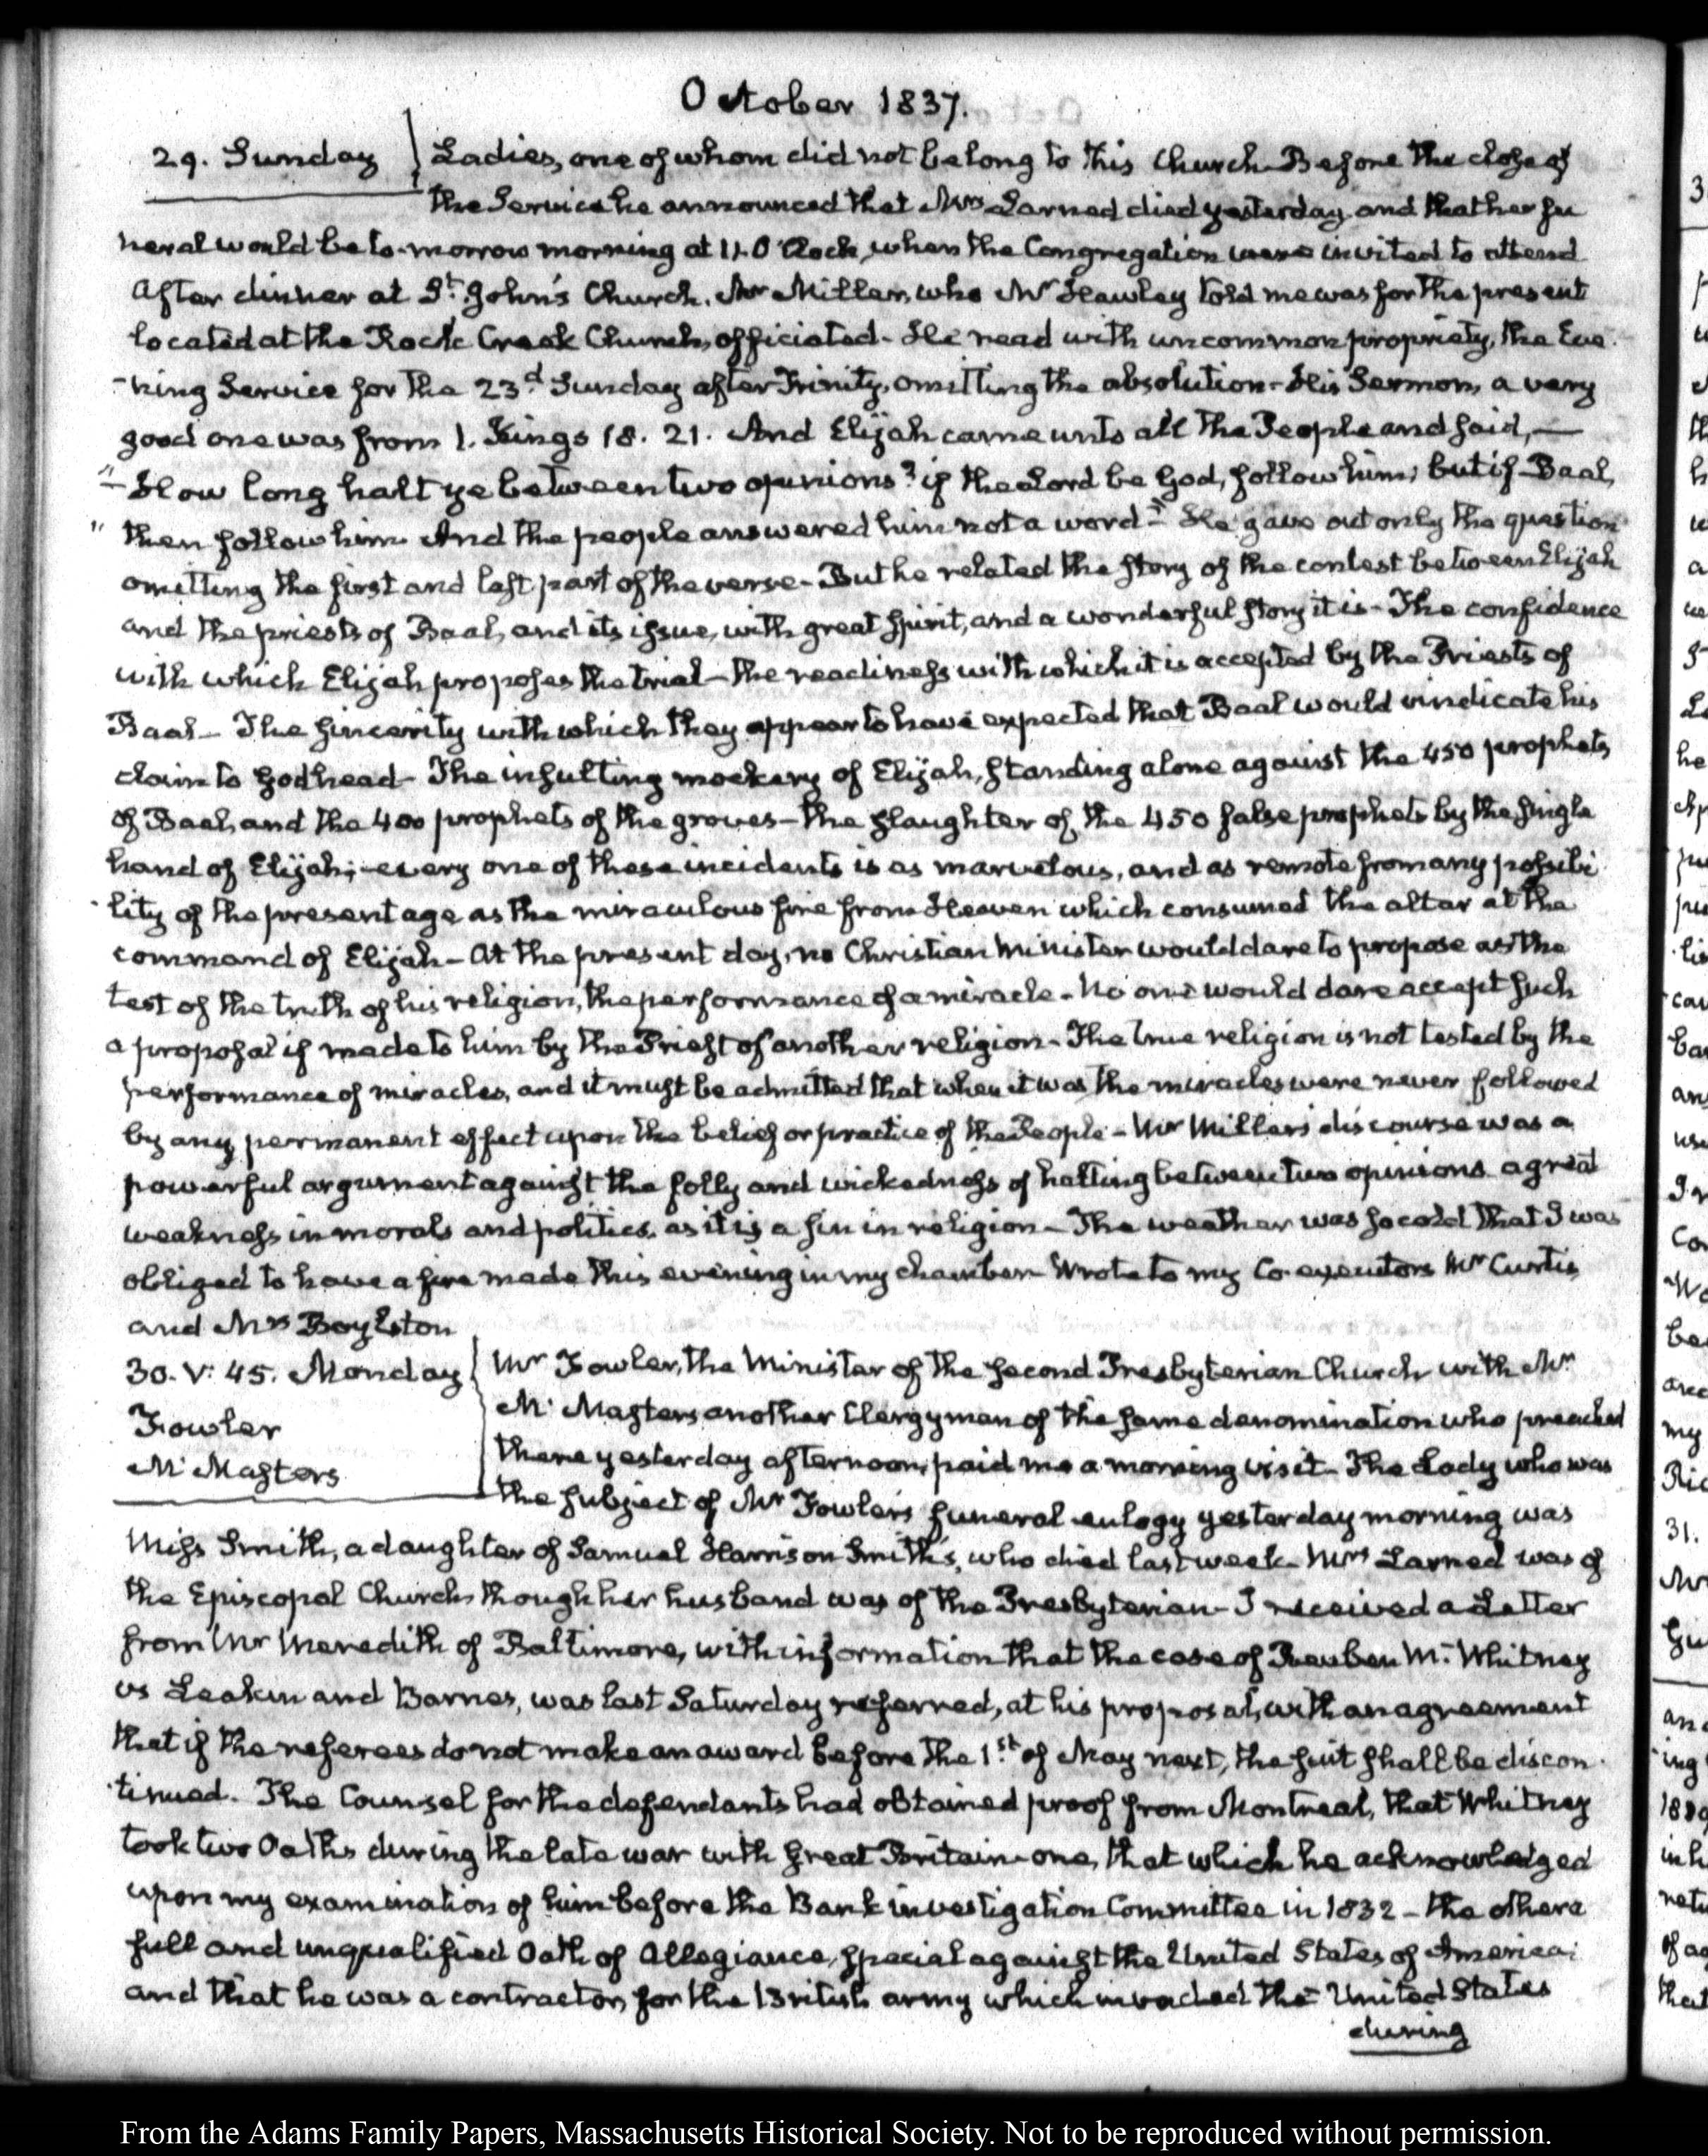 October 1837.
29. Sunday Ladies, one of whom did not belong to this Church. Before the close of
the Service he announced that Mrs Larned died yesterday and that her fu
neral would be to-morrow morning at 11. O'Clock, when the Congregation were invited to attend
After dinner at St. John's Church. Mr Miller, who Mr Hawley told me was for the present
located at the Rock Creek Church, officiated - He read with uncommon propriety, the Eve
-ning Service for the 23d. Sunday after Trinity, omitting the absolution - His Sermon, a very
good one was from 1. Kings 18. 21. And Elijah came unto all the People and said, —
"— How long halt ye between two opinions? if the Lord be God, follow him; but if Baal,
" then follow him. And the people answered him not a word—" He gave out only the question
omitting the first and last part of the verse - But he related the story of the contest between Elijah
and the priests of Baal, and its issue, with great spirit, and a wonderful story it is - The confidence
with which Elijah proposes the trial - the readiness with which it is accepted by the Priests of
Baal - The sincerity with which they appear to have expected that Baal would vindicate his
claim to Godhead - The insulting mockery of Elijah, standing alone against the 450 prophets
of Baal, and the 400 prophets of the groves - the slaughter of the 450 false prophets by the single
hand of Elijah; - every one of these incidents is as marvelous, and as remote from any possibi
-lity of the present age as the miraculous fire from Heaven which consumed the altar at the
command of Elijah - At the present day, no Christian Minister would dare to propose as the
test of the truth of his religion, the performance of a miracle - No one would dare accept such
a proposal if made to him by the Priest of another religion - The true religion is not tested by the
performance of miracles, and it must be admitted that when it was the miracles were never followed
by any permanent effect upon the belief or practice of the People - Mr Miller's discourse was a
powerful argument against the folly and wickedness of halting between two opinions a great
weakness in morals and politics, as it is a sin in religion - The weather was so cold that I was
obliged to have a fire made this evening in my chamber Wrote to my Co-executors Mr Curtis
and Mrs Boylston
30. V: 45. Monday Mr Fowler, the Minister of the second Presbyterian Church with Mr
Fowler McMasters another Clergyman of the same denomination who preached
McMasters there yesterday afternoon, paid me a morning visit - The Lady who was
the subject of Mr Fowler's funeral eulogy yesterday morning was
Miss Smith, a daughter of Samuel Harrison Smith's, who died last week - Mrs Larned was of
the Episcopal Church though her husband was of the Presbyterian - I received a Letter
from Mr Meredith of Baltimore, with information that the case of Reuben M. Whitney
vs Leakin and Barnes, was last Saturday referred, at his proposal, with an agreement
that if the referees do not make an award before the 1st. of May next, the suit shall be discon
-tinued. The Counsel for the defendants had obtained proof from Montreal, that Whitney
took two Oaths during the late war with Great Britain - one, that which he acknowledged
upon my examination of him before the Bank investigation Committee in 1832 - the other a
full and unqualified Oath of Allegiance, special against the United States of America;
and that he was a contractor for the British army which invaded the United States
during
From the Adams Family Papers, Massachusetts Historical Society. Not to be reproduced without permission.